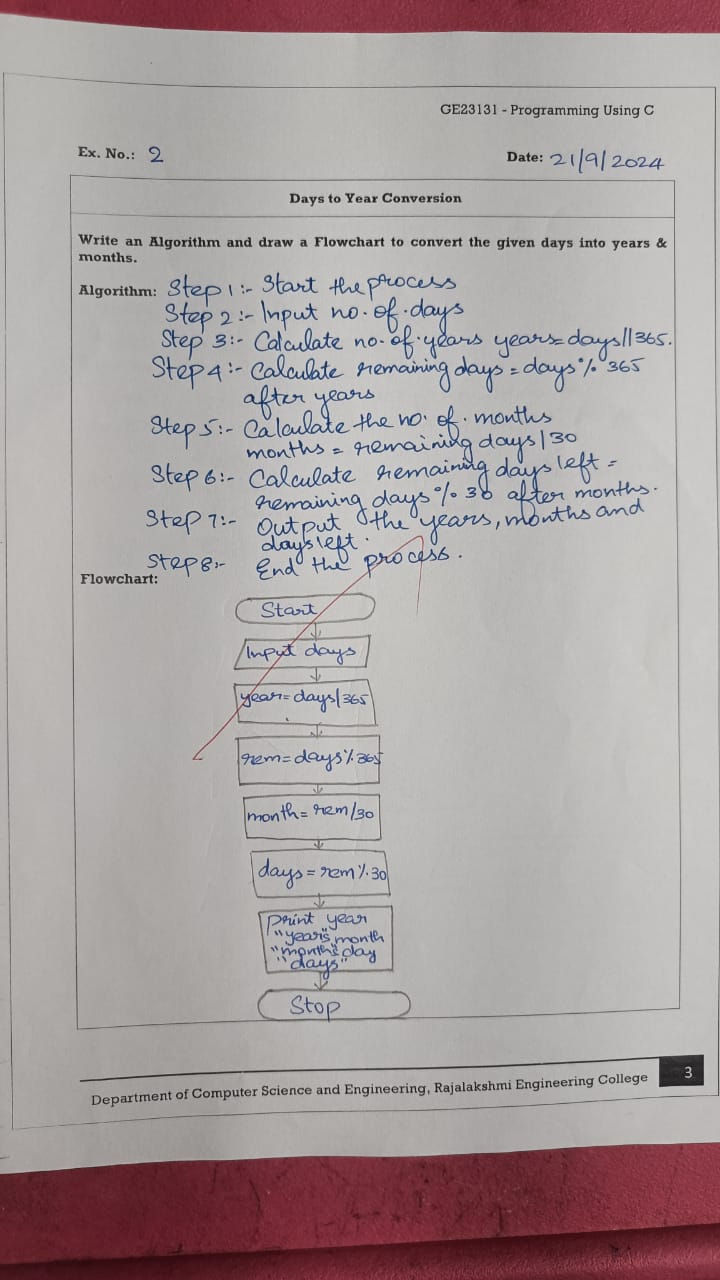 GE23131 - Programming Using C
Ex. No.: 2
Date: 21/9/2024
Days to Year Conversion
Write an Algorithm and draw a Flowchart to convert the given days into years &
months.
Algorithm: Step 1:- Start the process
Step 2:- Input no. of. days
Step 3:- Calculate no. of. years years=days//365.
Step 4:- Calculate remaining days = days % 365
after years
Step 5:- Calculate the no. of. months
months = remaining days/30
Step 6:- Calculate remaining days left =
remaining days % 30 after months.
Step 7:- Output the years, months and
days left.
Step 8:- End the process.
Flowchart:
Start
Input days
year=days/365
rem=days%365
month=rem/30
days=rem%30
print year
"years" month
"months" day
"days"
Stop
Department of Computer Science and Engineering, Rajalakshmi Engineering College
3